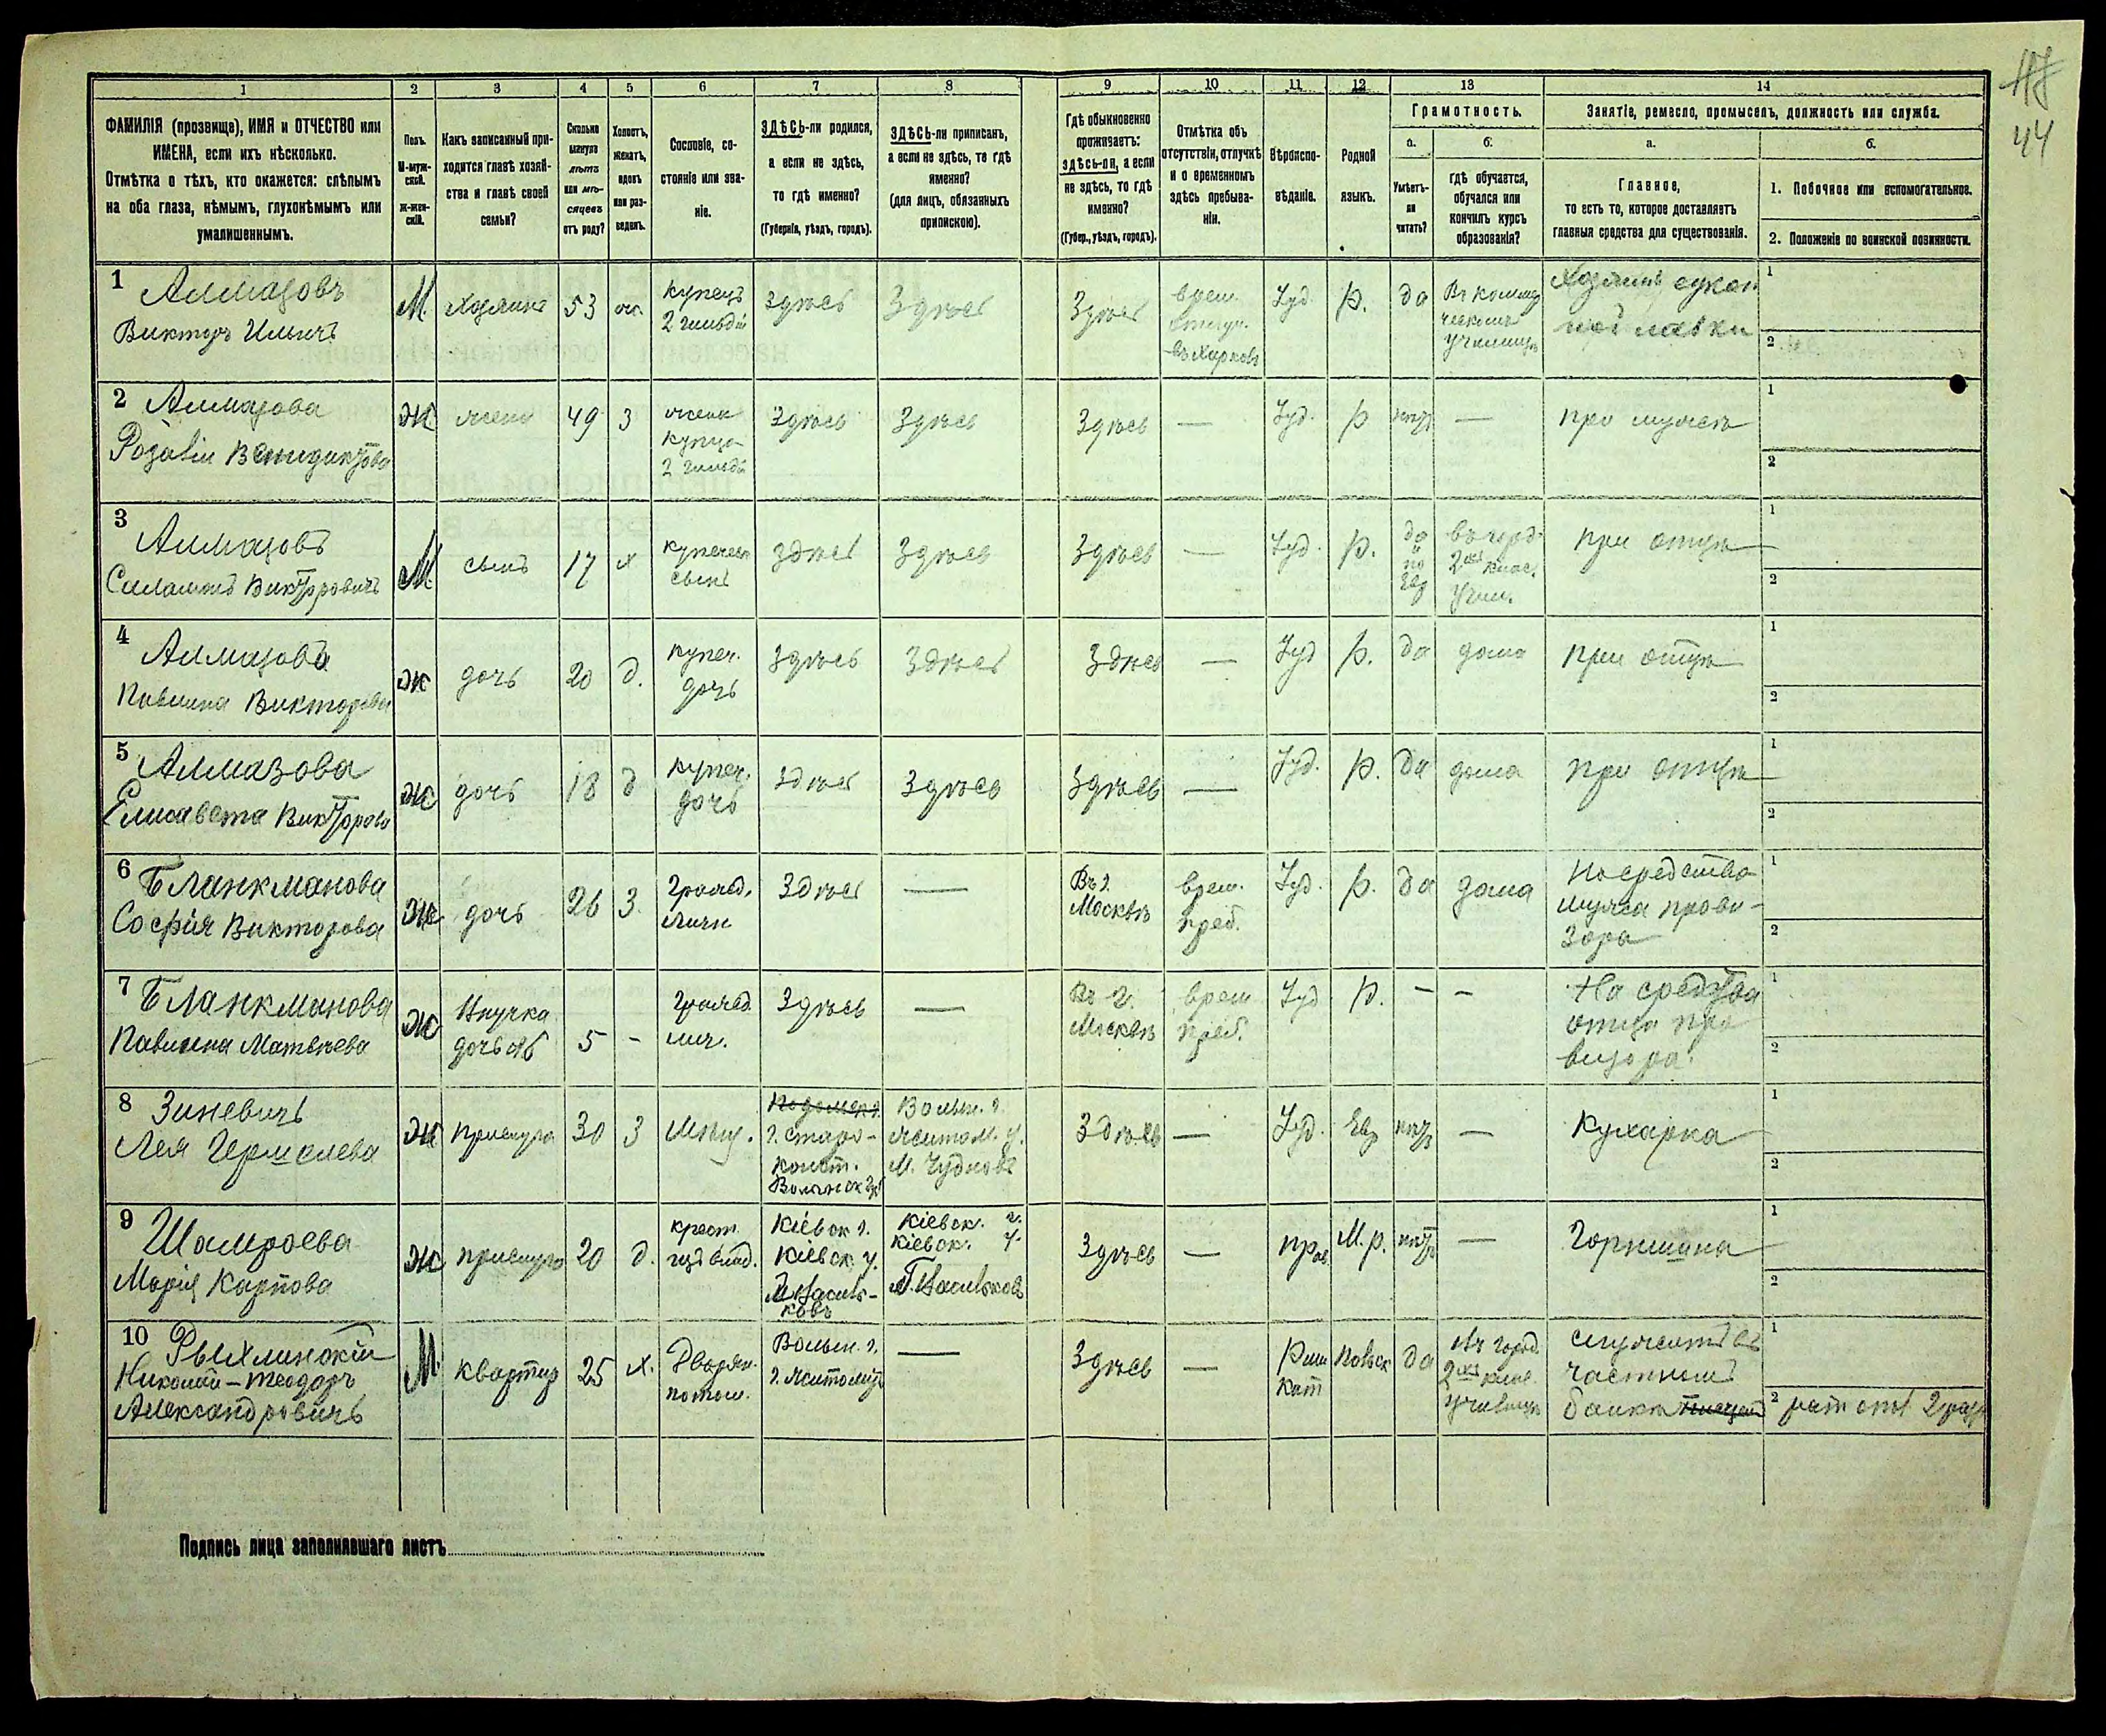 44
1 2 3 4 5 6 7 8 9 10 11 12 13 14
ФАМИЛІЯ (прозвище), ИМЯ и ОТЧЕСТВО или
ИМЕНА, если ихъ нѣсколько.
Отмѣтка о тѣхъ, кто окажется: слѣпымъ
на оба глаза, нѣмымъ, глухонѣмымъ или
умалишеннымъ.
Полъ.
М-муж-
ской.
Ж-жен-
скій.
Какъ записанный при-
ходится главѣ хозяй-
ства и главѣ своей
семьи?
Сколько
минуло
лѣтъ
или мѣ-
сяцевъ
отъ роду?
Холостъ,
женатъ,
вдовъ
или раз-
веденъ.
Сословіе, со-
стояніе или зва-
ніе.
ЗДѢСЬ-ли родился,
а если не здѣсь,
то гдѣ именно?
(Губернія, уѣздъ, городъ).
ЗДѢСЬ-ли приписанъ,
а если не здѣсь, то гдѣ
именно?
(для лицъ, обязанныхъ
припискою).
Гдѣ обыкновенно
проживаетъ:
здѣсь-ли, а если
не здѣсь, то гдѣ
именно?
(Губер., уѣздъ, городъ).
Отмѣтка объ
отсутствіи, отлучкѣ
и о временномъ
здѣсь пребыва-
ніи.
Вѣроиспо-
вѣданіе.
Родной
языкъ.
Грамотность.
а.
Умѣетъ-
ли
читать?
б.
гдѣ обучается,
обучался или
кончилъ курсъ
образованія?
Занятіе, ремесло, промыселъ, должность или служба.
а.
Главное,
то есть то, которое доставляетъ
главныя средства для существованія.
б.
1. Побочное или вспомогательное.
2. Положеніе по воинской повинности.
1 Алмазовъ
Викторъ Ильичъ
М. Хозяинъ 53 ж.
купецъ
2 гильдіи
Здѣсь Здѣсь Здѣсь
врем.
отлуч.
въ Харьковъ
Іуд. р. да
Въ коммер
ческомъ
училищѣ
Хозяинъ сукон
ной лавки
1
2
2 Алмазова
Розалія Венидиктова
Ж жена 49 З
жена
купца
2 гильд
Здѣсь Здѣсь Здѣсь — Іуд. р нѣтъ — при мужѣ
1
2
3 Алмазовъ
Соломонъ Викторовичъ
М. сынъ 17 х
купеческ
сынъ
здѣсь Здѣсь Здѣсь — Іуд. р.
да
и
по
Евр
въ город.
2хъ клас.
учил.
при отцѣ
1
2
4 Алмазова
Павлина Викторова
Ж дочь 20 д.
купеч.
дочь
Здѣсь Здѣсь Здѣсь — Іуд р. да дома при отцѣ
1
2
5 Алмазова
Елисавета Викторова
Ж дочь 18 д
купеч.
дочь
Здѣсь Здѣсь Здѣсь — Іуд. р. да дома при отцѣ
1
2
6 Бланкманова
Софія Викторова
Ж дочь 26 З.
Гражд.
личн
Здѣсь —
Въ г.
Москвѣ
врем.
преб.
Іуд. р. да дома
На средства
мужа прови-
зора
1
2
7 Бланкманова
Павлина Матвѣева
Ж
Внучка
дочь №6
5 -
Гражд
лич.
Здѣсь —
Въ г.
Москвѣ
врем
преб.
Іуд р. - -
На средства
отца про
визора.
1
2
8 Зиневичъ
Лея Гершелева
Ж прислуга 30 З Мѣщ.
Подольск г.
г. старо-
конст.
Волынск губ
Волын. г.
Житом. у.
М. Чудновъ
Здѣсь — Іуд. Евр нѣтъ — Кухарка
1
2
9 Шамраева
Марія Карпова
Ж прислуга 20 д.
крест.
изъ влад.
Кіевск г.
Кіевск у.
М Василь-
ковъ
Кіевск. г.
Кіевск. у.
Г. Васильковъ
Здѣсь — прав. М.р. нѣтъ — Горничная
1
2
10 Рыхлинскій
Николай-Теодоръ
Александровичъ
М. квартир 25 х.
Дворян.
потом.
Волын. г.
г. Житомир
— Здѣсь —
Рим
кат
польск да
Въ город.
2хъ клас
училищѣ
служитъ въ
частномъ
банкѣ
1
2 рат опл 2 разр
Подпись лица заполнявшаго листъ